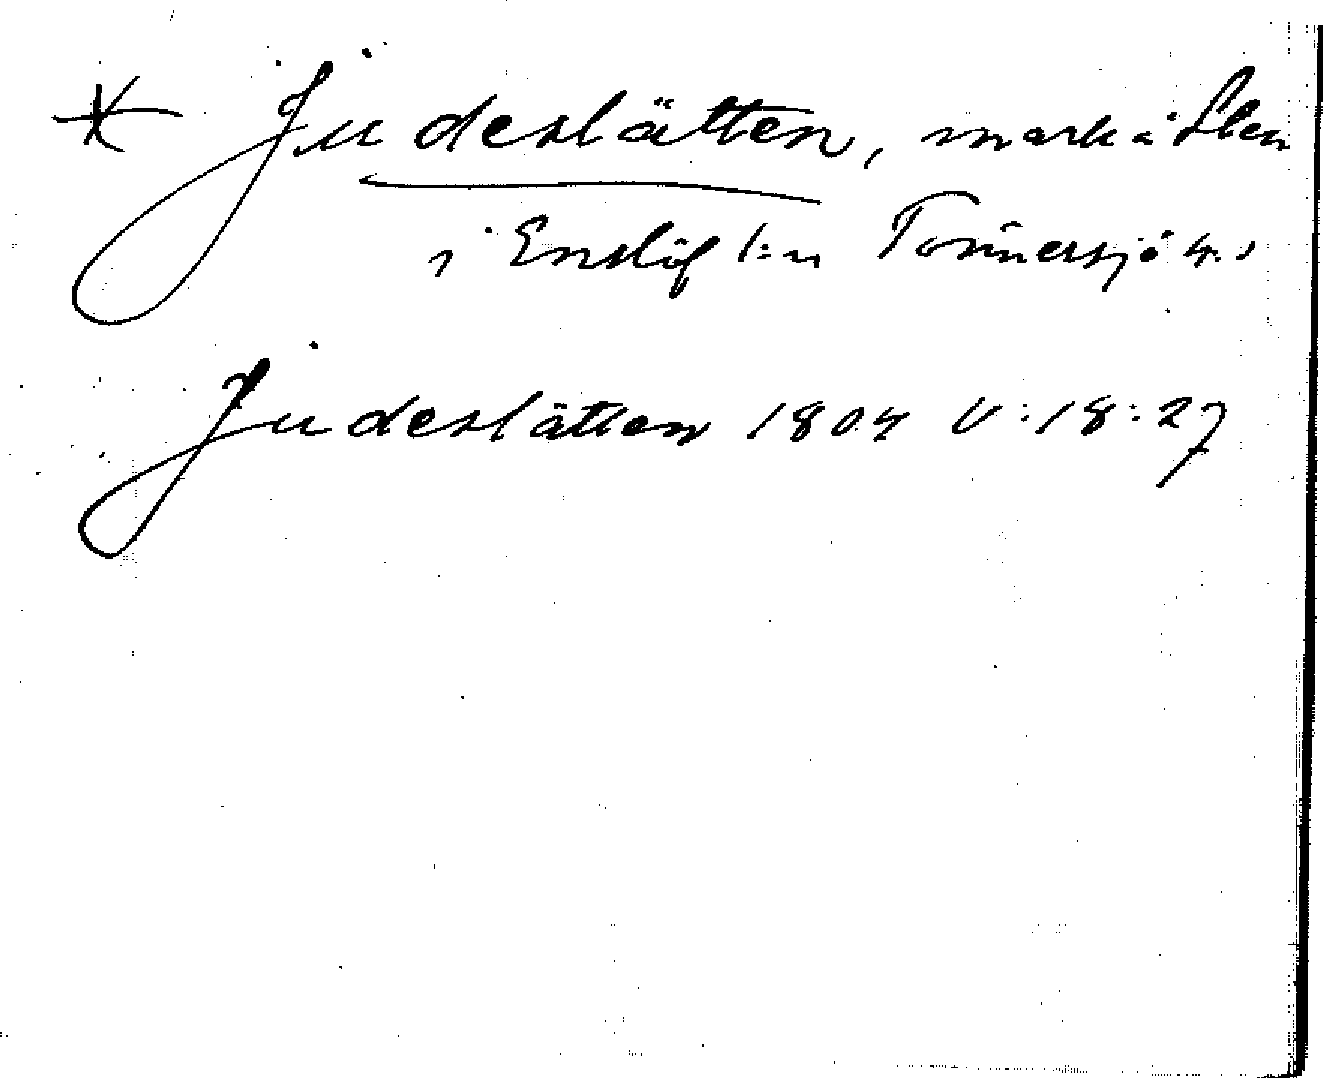 * Judeslätten, mark å Sten
i Enslöfs sn Tönnersjö h.
Judeslätten 1804 V:18:27